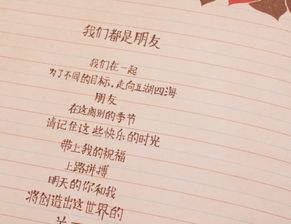 我们都是朋友
我们在一起
为了不同的目标、走向五湖四海
朋友
在这离别的季节
请记在这些快乐的时光
带上我的祝福
上路拼搏
明天的你和我
将创造出这世界的